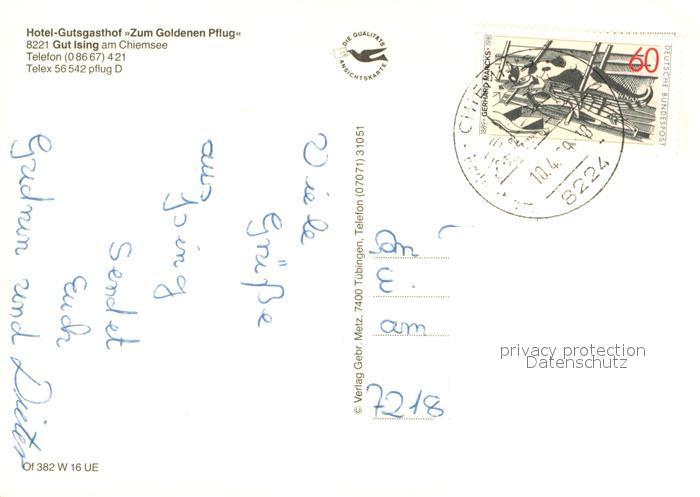 Hotel-Gutsgasthof »Zum Goldenen Pflug«
8221 Gut Ising am Chiemsee
Telefon (0 86 67) 4 21
Telex 56 542 pflug D
DIE QUALITÄTS
ANSICHTSKARTE
60
DEUTSCHE BUNDESPOST
1889 · GERHARD MARCKS · 1981
10.4.
8224
Viele
Grüße
aus
Ising
sendet
Euch
Gudrun und Dieter
© Verlag Gebr. Metz, 7400 Tübingen, Telefon (07071) 31051
u.
am
7218
privacy protection
Datenschutz
Of 382 W 16 UE